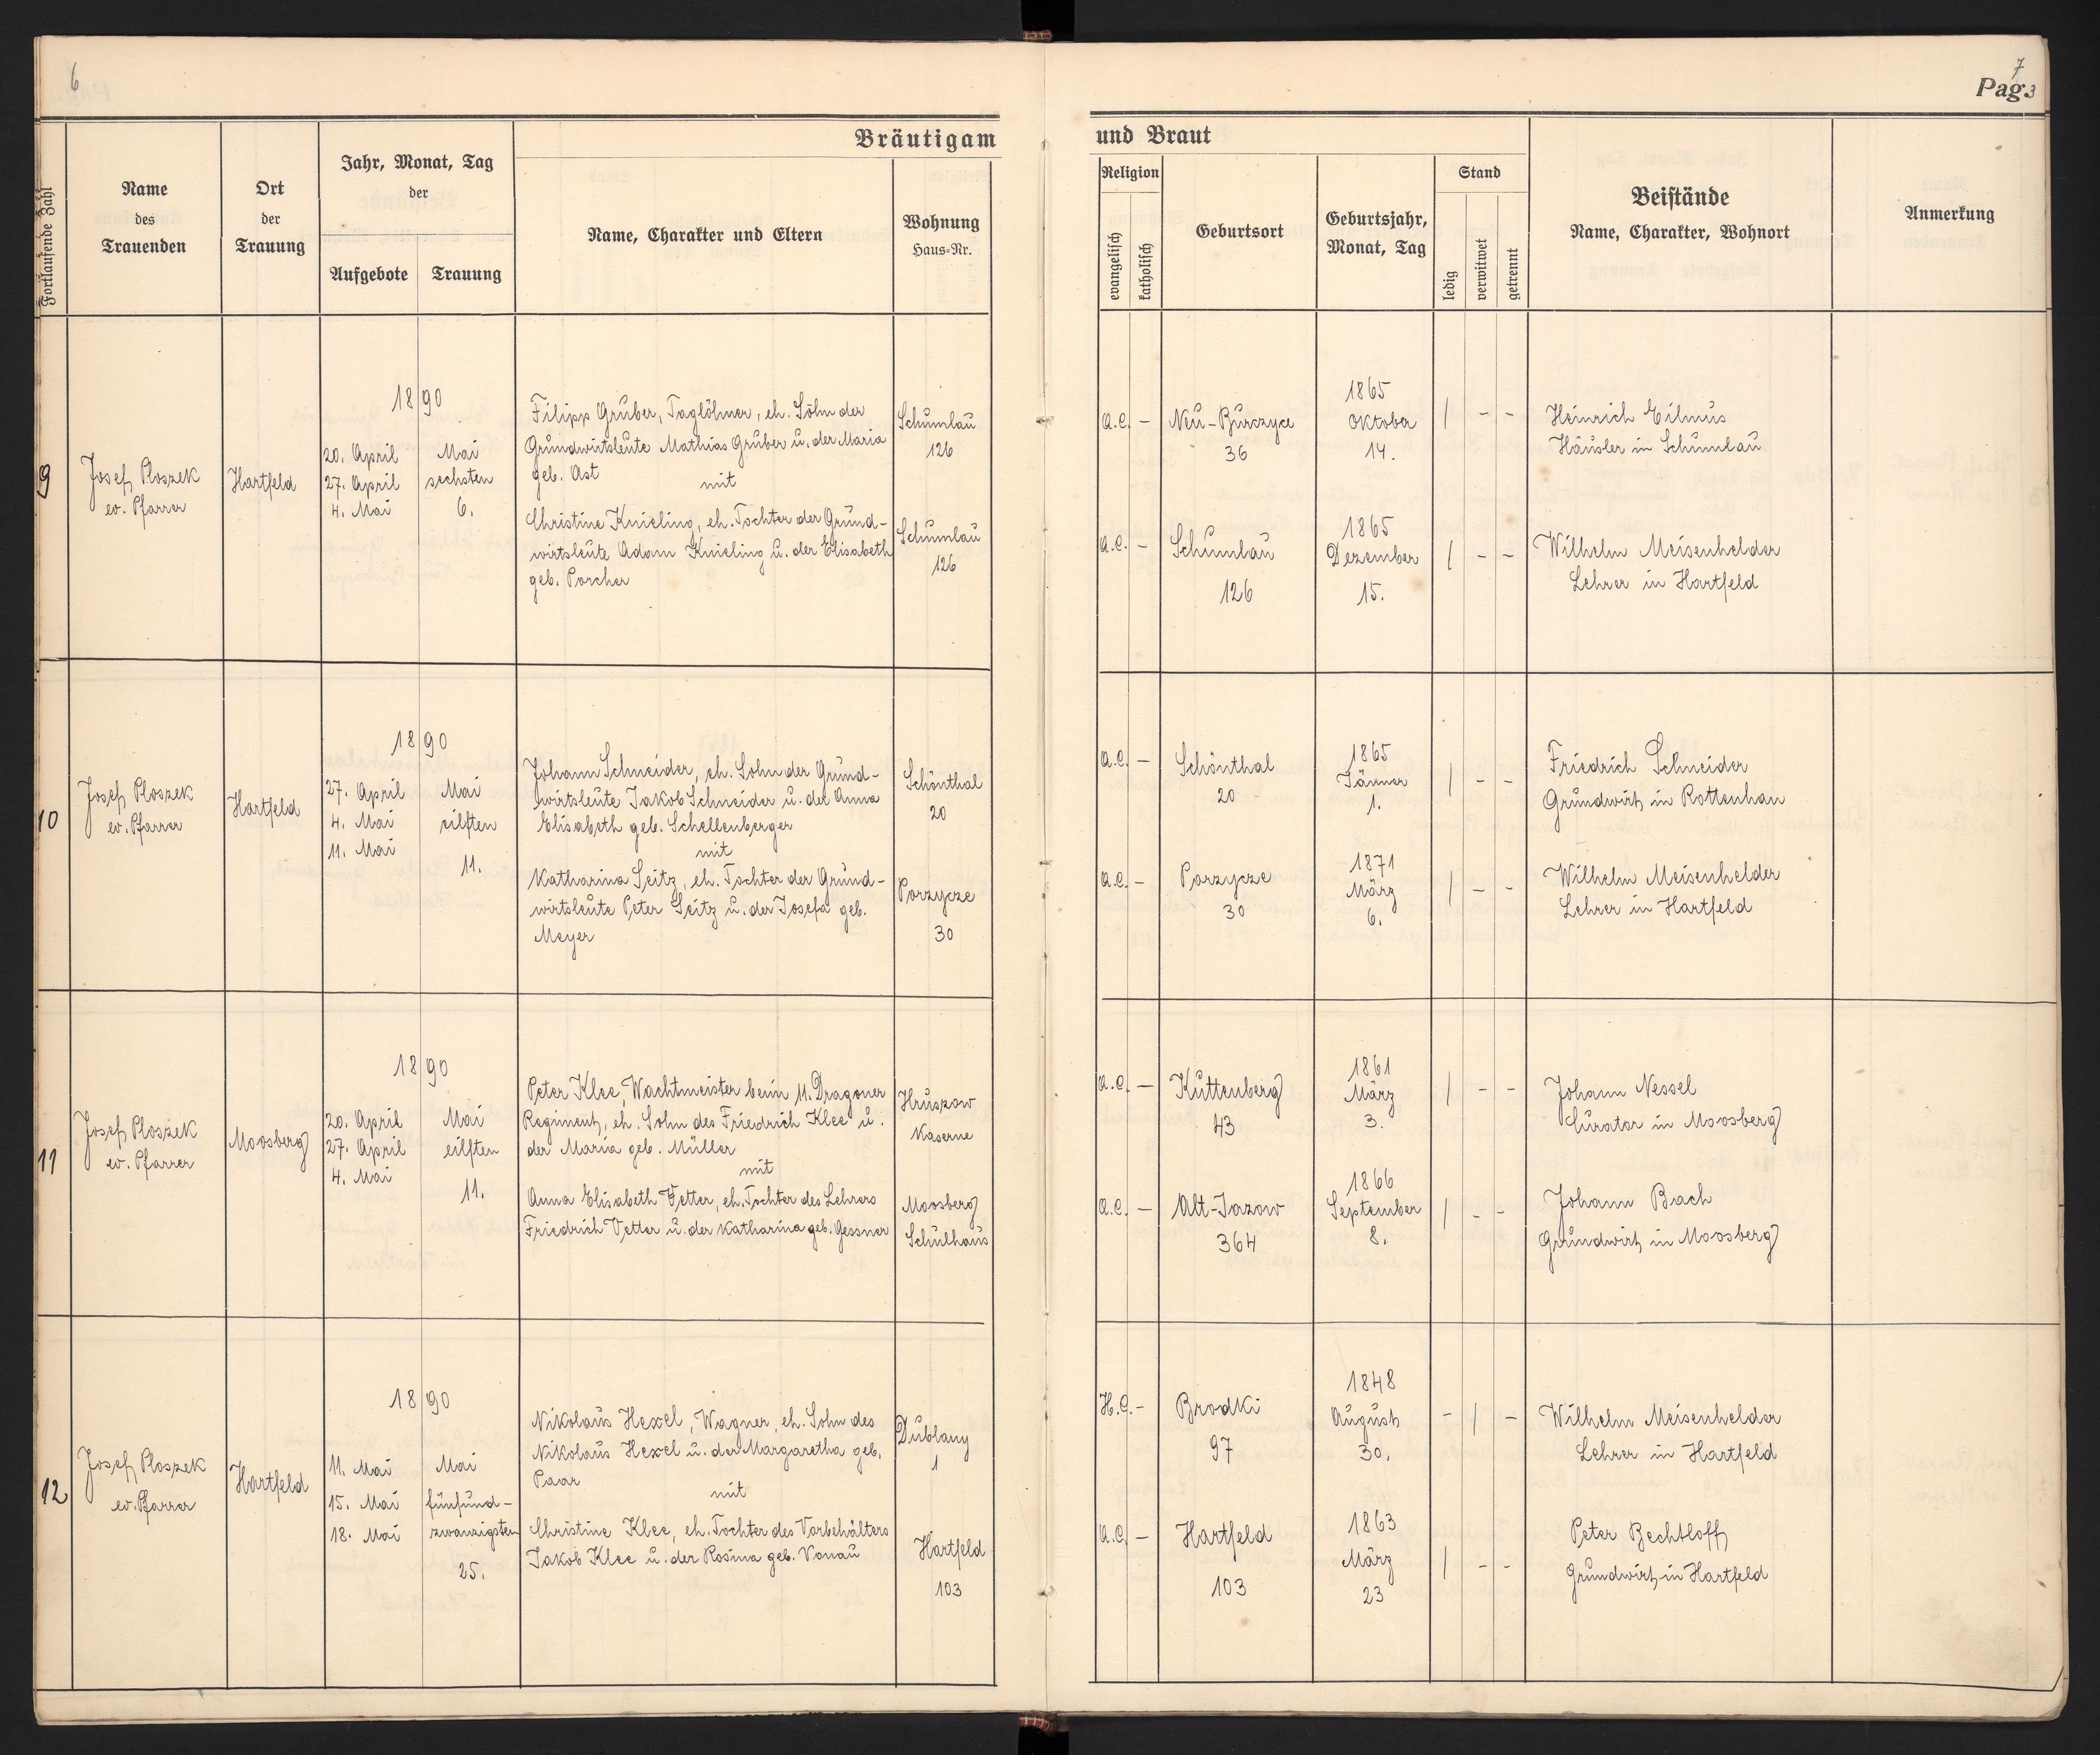 6
7
Pag. 3
Bräutigam
und Braut
Fortlaufende Zahl
Name
des
Trauenden
Ort
der
Trauung
Jahr, Monat, Tag
der
Aufgebote
Trauung
Name, Charakter und Eltern
Wohnung
Haus-Nr.
Religion
evangelisch
katholisch
Geburtsort
Geburtsjahr,
Monat, Tag
Stand
ledig
verwitwet
getrennt
Beistände
Name, Charakter, Wohnort
Anmerkung
9
Josef Ploszek
ev. Pfarrer
Hartfeld
1890
20. April
27. April
4. Mai
Mai
sechsten
6.
Filipp Gruber, Taglöhner, eh. Sohn der
Grundwirtsleute Mathias Gruber u. der Maria
geb. Ast
mit
Christine Knieling, eh. Tochter der Grund-
wirtsleute Adam Knieling u. der Elisabeth
geb. Porcher
Schumlau
126
Schumlau
126
A.C. –
Neu-Burczyce
36
1865
Oktober
14.
/ – –
Heinrich Eilmus
Häusler in Schumlau
A.C. –
Schumlau
126
1865
Dezember
15.
/ – –
Wilhelm Meisenhelder
Lehrer in Hartfeld
10
Josef Ploszek
ev. Pfarrer
Hartfeld
1890
27. April
4. Mai
11. Mai
Mai
eilften
11.
Johann Schneider, eh. Sohn der Grund-
wirtsleute Jakob Schneider u. der Anna
Elisabeth geb. Schellenberger
mit
Katharina Seitz, eh. Tochter der Grund-
wirtsleute Peter Seitz u. der Josefa geb.
Meyer
Schönthal
20
Porzycze
30
A.C. –
Schönthal
20
1865
Jänner
1.
/ – –
Friedrich Schneider
Grundwirt in Rottenhan
A.C. –
Porzycze
30
1871
März
6.
/ – –
Wilhelm Meisenhelder
Lehrer in Hartfeld
11
Josef Ploszek
ev. Pfarrer
Moosberg
1890
20. April
27. April
4. Mai
Mai
eilften
11.
Peter Klee, Wachtmeister beim 11. Dragoner
Regiment, eh. Sohn des Friedrich Klee u.
der Maria geb. Müller
mit
Anna Elisabeth Vetter, eh. Tochter des Lehrers
Friedrich Vetter u. der Katharina geb. Gessner
Hruszow
Kaserne
Moosberg
Schulhaus
A.C. –
Kuttenberg
43
1861
März
3.
/ – –
Johann Nessel
Curator in Moosberg
A.C. –
Alt-Jazow
364
1866
September
8.
/ – –
Johann Bach
Grundwirt in Moosberg
12
Josef Ploszek
ev. Pfarrer
Hartfeld
1890
11. Mai
15. Mai
18. Mai
Mai
fünfund-
zwanzigsten
25.
Nikolaus Hexel, Wagner, eh. Sohn des
Nikolaus Hexel u. der Margaretha geb.
Paar
mit
Christine Klee, eh. Tochter des Vorbehälters
Jakob Klee u. der Rosina geb. Vonau
Dublany
1
Hartfeld
103
H.C. –
Brodki
97
1848
August
30.
– / –
Wilhelm Meisenhelder
Lehrer in Hartfeld
A.C. –
Hartfeld
103
1863
März
23
/ – –
Peter Bechtloff
Grundwirt in Hartfeld